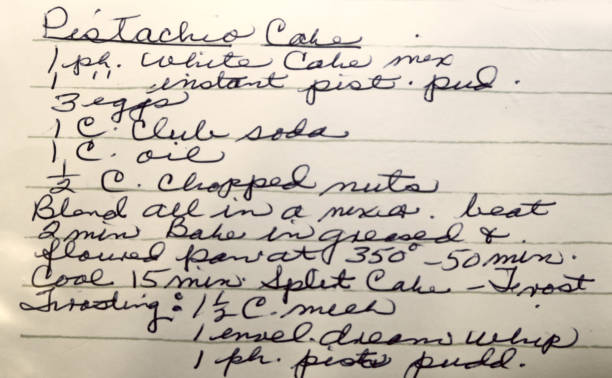 Pistachio Cake
1 pk. White Cake mex
1 " instant pist. pud.
3 eggs
1 C. Club soda
1 C. oil
1/2 C. Chopped nuts
Blend all in a mixer. beat
2 min Bake in greased &
floured pan at 350° - 50 min.
Cool 15 min. Split Cake - Frost
Frosting: 1 1/2 C. milk
1 envel. dream whip
1 pk. pista pudd.